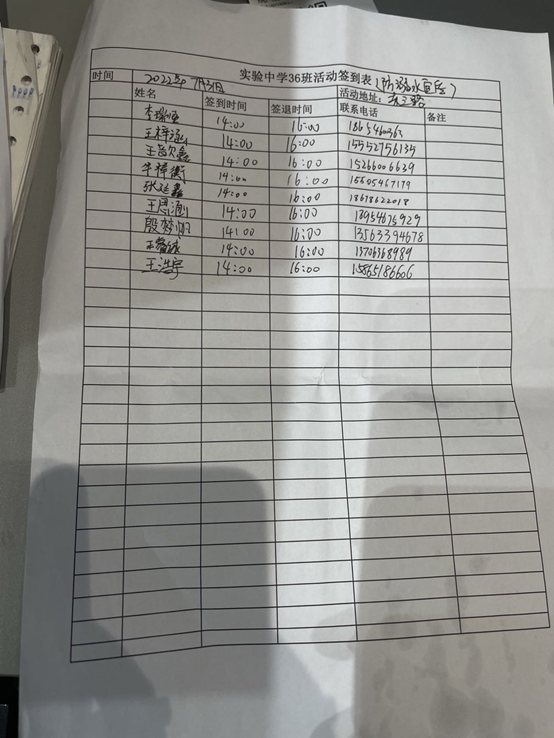 实验中学36班活动签到表(防溺水宣传)
时间 2022年7月31日 活动地址:
姓名 签到时间 签退时间 联系电话 备注
14:00 16:00
王梓涵 14:00 16:00 15552756135
14:00 16:00 15266006639
牛梓衡 14:00 16:00 15605467179
张延鑫 14:00 16:00 18678622018
王恩涵 14:00 16:00 18954675929
殷梦 14:00 16:00 13563394678
14:00 16:00 13706368989
王浩宇 14:00 16:00 15865186606